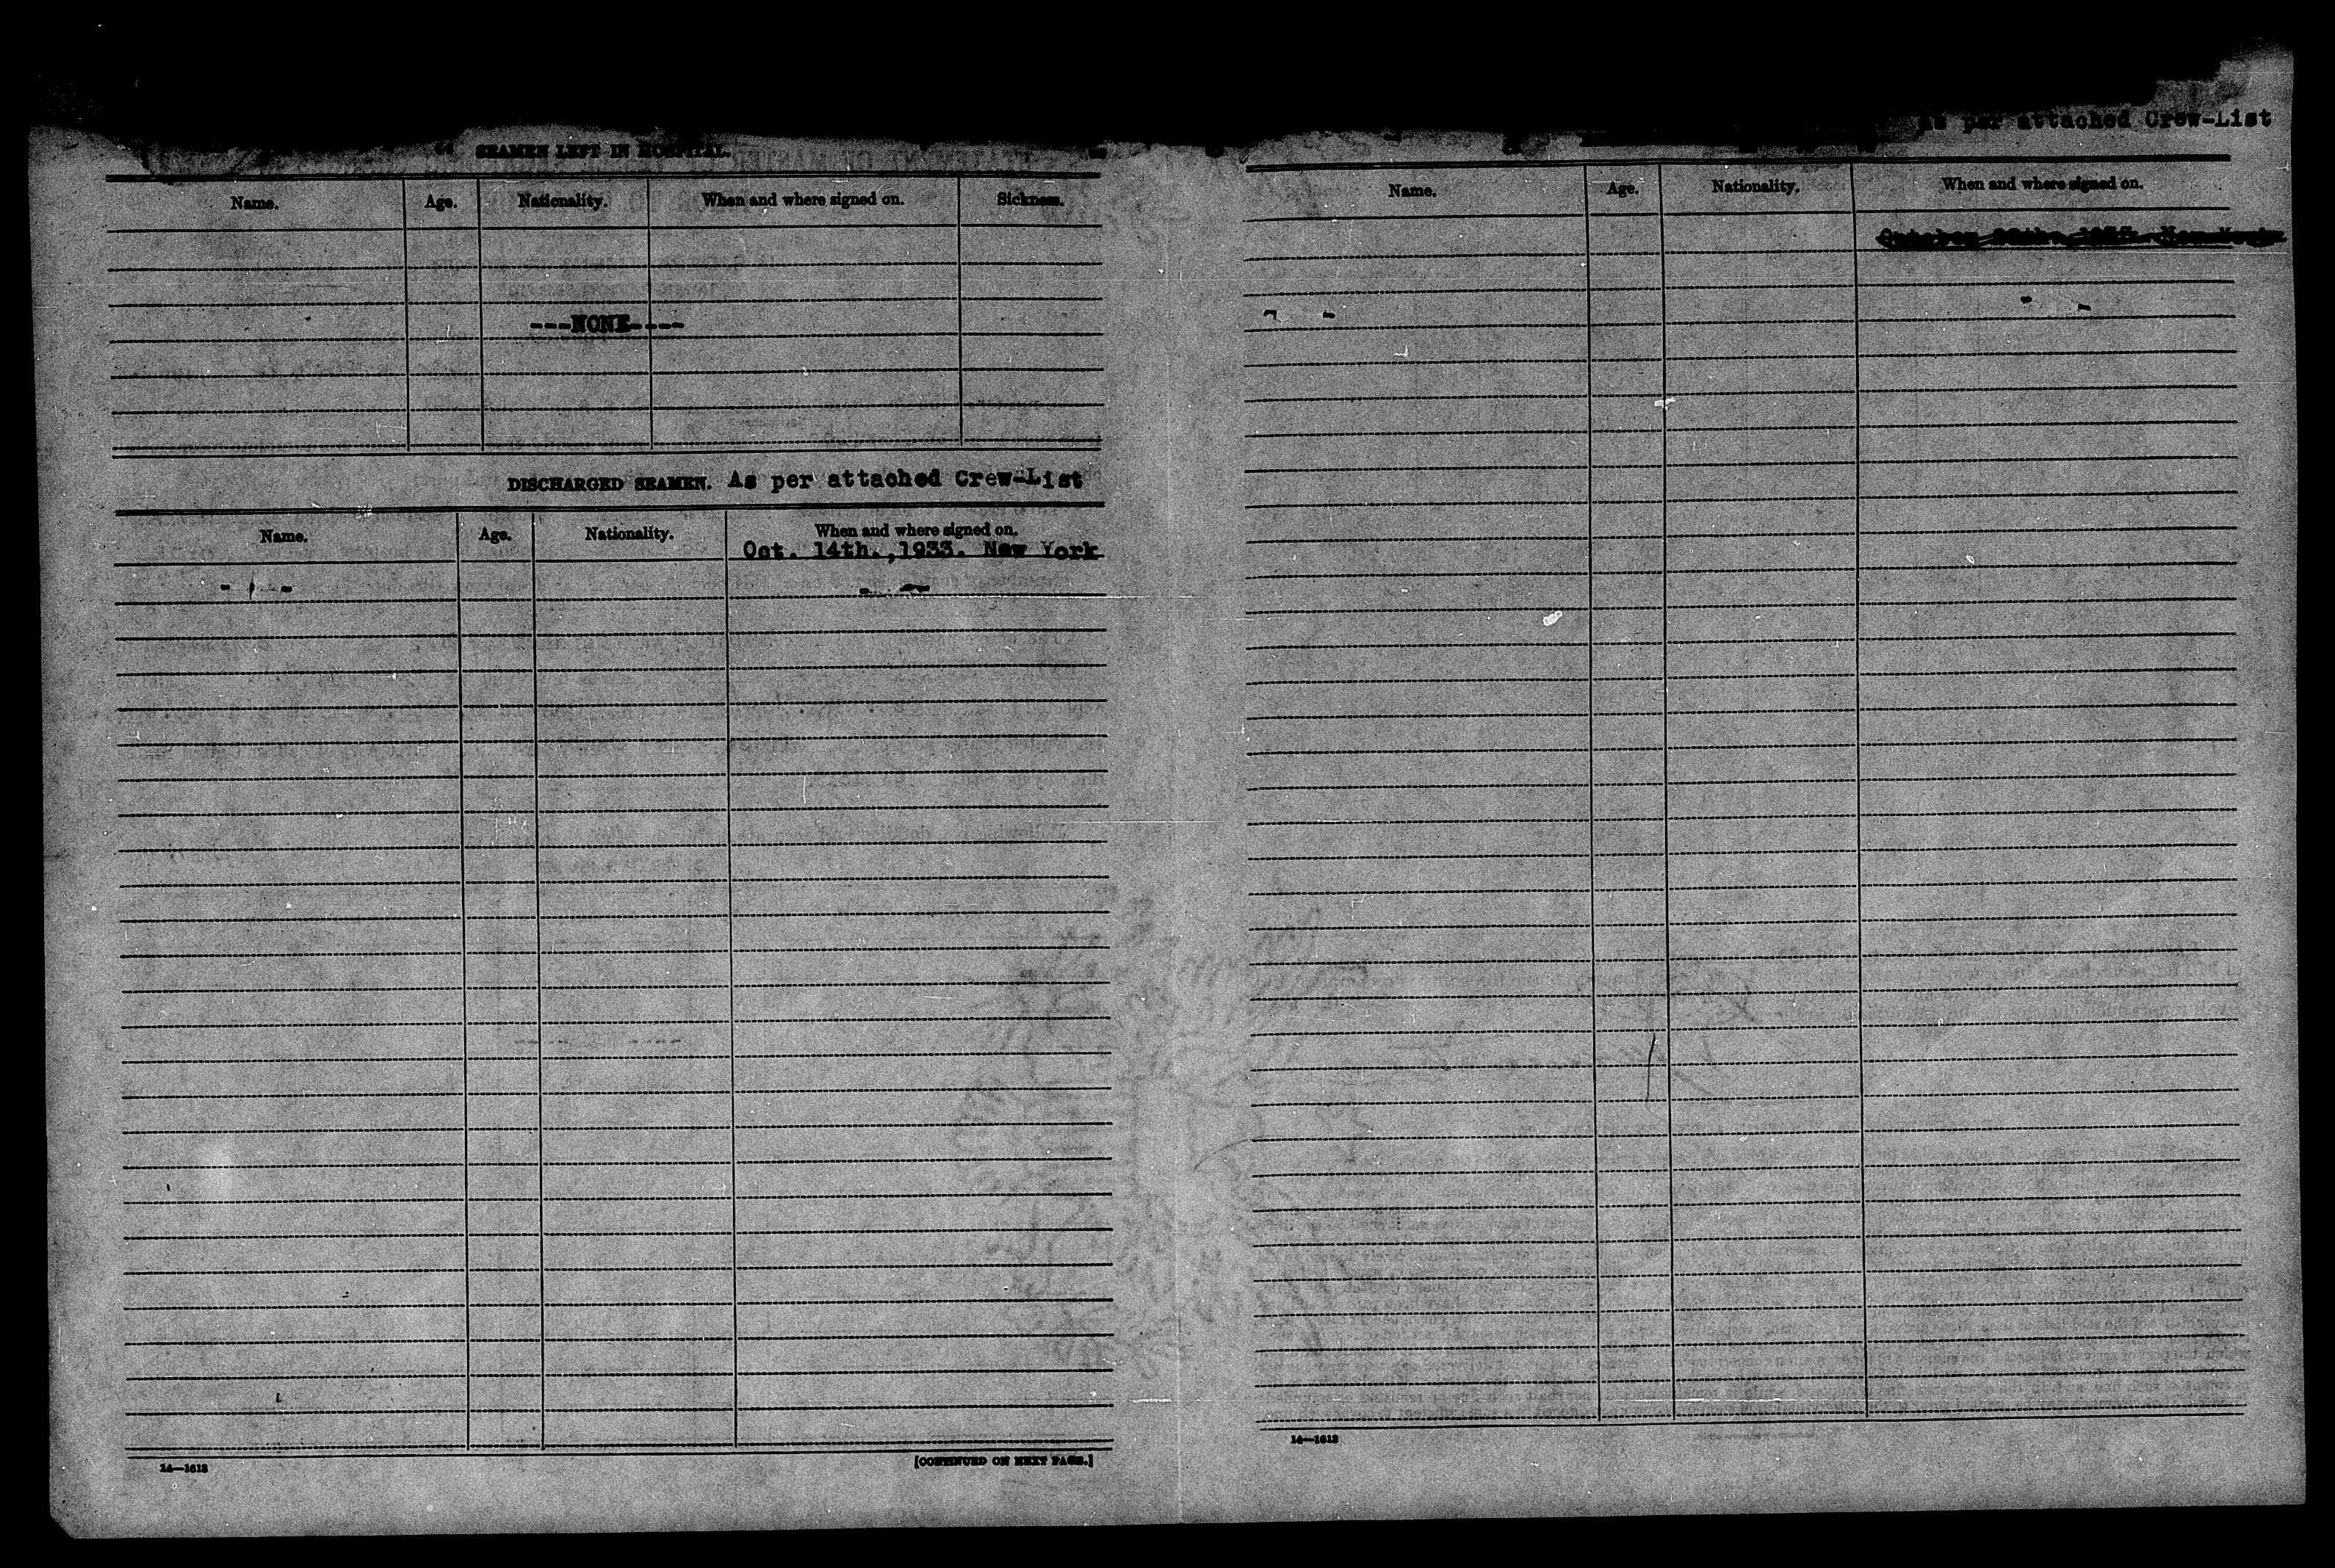 SEAMEN LEFT IN HOSPITAL.
Name. Age. Nationality. When and where signed on. Sickness.
---NONE----
DISCHARGED SEAMEN. As per attached Crew-List
Name. Age. Nationality. When and where signed on.
Oct. 14th.,1933. New York
14—1613
[CONTINUED ON NEXT PAGE.]
As per attached Crew-List
Name. Age. Nationality. When and where signed on.
14—1613